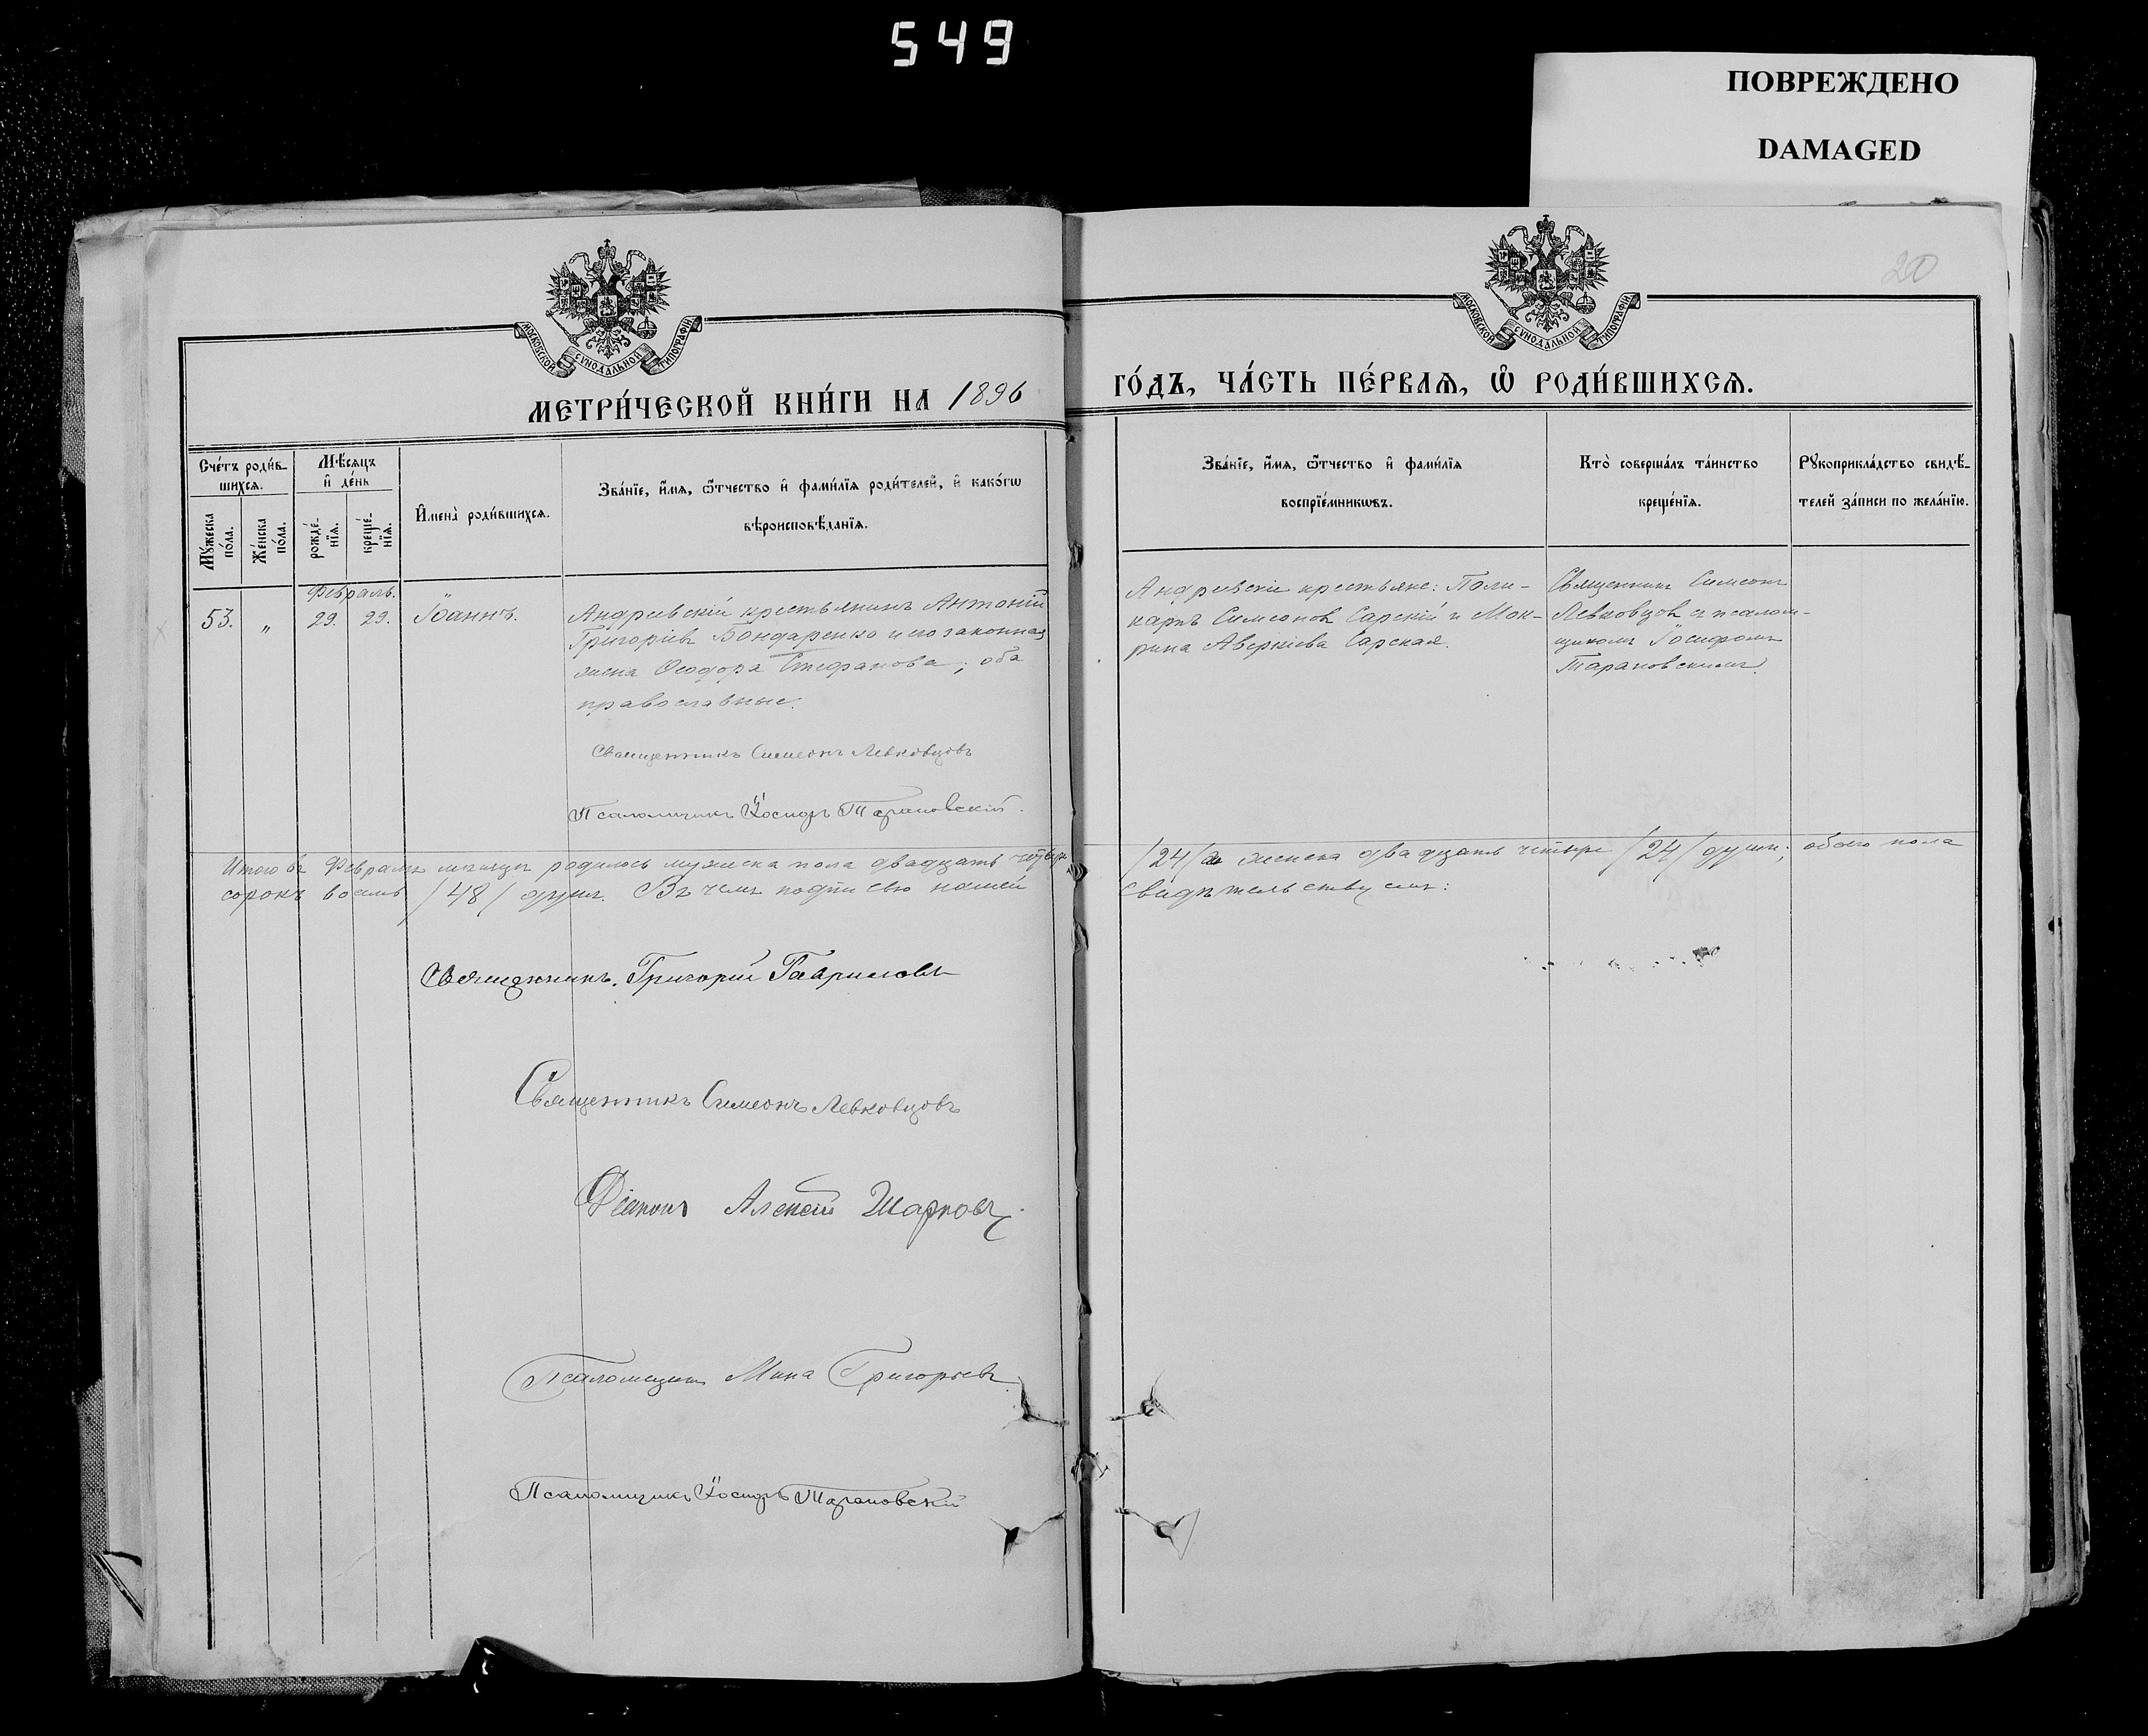 549
ПОВРЕЖДЕНО
DAMAGED
20
МОСКОВСКОЙ СУНОДАЛЬНОЙ ТИПОГРАФІИ
МОСКОВСКОЙ СУНОДАЛЬНОЙ ТИПОГРАФІИ
МЕТРИ́ЧЕСКОЙ КНИ́ГИ НА 1896
ГО́ДЪ, ЧА́СТЬ ПЕ́РВАѦ, Ѡ҆ РОДИ́ВШИХСѦ.
Сче́тъ роди́в-
шихсѧ.
Мѣ́сѧцъ
и҆ де́нь
Мꙋ́жеска
по́ла.
Же́нска
по́ла.
рожде́-
нїѧ.
креще́-
нїѧ.
И҆мена̀ роди́вшихсѧ.
Зва́нїе, и҆́мѧ, ѻ҆́тчество и҆ фами́лїѧ роди́телей, и҆ како́гѡ
вѣроисповѣ́данїѧ.
Зва́нїе, и҆́мѧ, ѻ҆́тчество и҆ фами́лїѧ
воспрїе́мникѡвъ.
Кто̀ соверша́лъ та́инство
креще́нїѧ.
Рꙋкоприкла́дство свидѣ́-
телей за́писи по жела́нїю.
Февраль.
53. „ 29. 29. Іоаннъ.
Андреевскій крестьянинъ Антоній
Григоріевъ Бондаренко и его законная
жена Ѳеодора Стефанова; оба
православные.
Священникъ Симеонъ Левковцовъ
Псаломщикъ Іосифъ Тарановскій.
Андреевскіе крестьяне: Поли-
карпъ Симеоновъ Сарскій и Мок-
рина Аверкіева Сарская.
Священникъ Симеонъ
Левковцовъ съ псалом-
щикомъ Іосифомъ
Тарановскимъ.
Итого въ Февралѣ мѣсяцѣ родилось мужеска пола двадцать четыре
/24/ а женска двадцать четыре /24/ души; обоего пола
сорокъ восемь /48/ душъ. Въ чемъ подписью нашей
свидѣтельствуемъ:
Священникъ Григорій Гавриловъ
Священникъ Симеонъ Левковцовъ
Діаконъ Алексій Шарковъ.
Псаломщикъ Мина Григорьевъ
Псаломщикъ Іосифъ Тарановскій